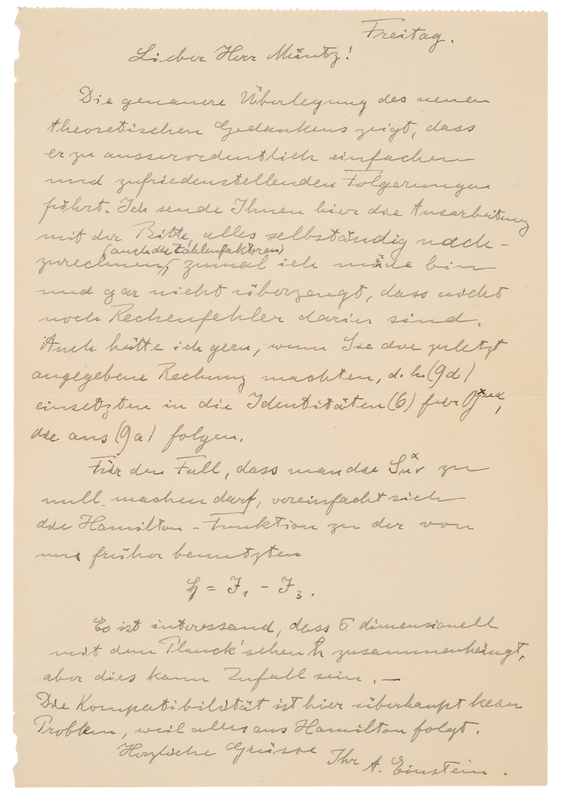 Freitag.
Lieber Herr Müntz!
Die genauere Überlegung des neuen
theoretischen Gedankens zeigt, dass
er zu ausserordentlich einfachen
und zufriedenstellenden Folgerungen
führt. Ich sende Ihnen hier die Ausarbeitung
mit der Bitte, alles selbständig nach-
(auch die Zahlenfaktoren)
zurechnen, zumal ich müde bin
und gar nicht überzeugt, dass nicht
noch Rechenfehler darin sind.
Auch hätte ich gern, wenn Sie die zuletzt
angegebene Rechnung machten, d. h. (9d)
einsetzten in die Identitäten (6) für
die aus (9a) folgen.
Für den Fall, dass man die S zu
null machen darf, vereinfacht sich
die Hamilton-Funktion zu der von
uns früher benutzten
= J₁ - J₃.
Es ist interessand, dass 6 dimensionell
mit dem Planck'schen h zusammenhängt,
aber dies kann Zufall sein. —
Die Kompatibilität ist hier überhaupt kein
Problem, weil alles aus Hamilton folgt.
Herzliche Grüsse Ihr
A. Einstein.